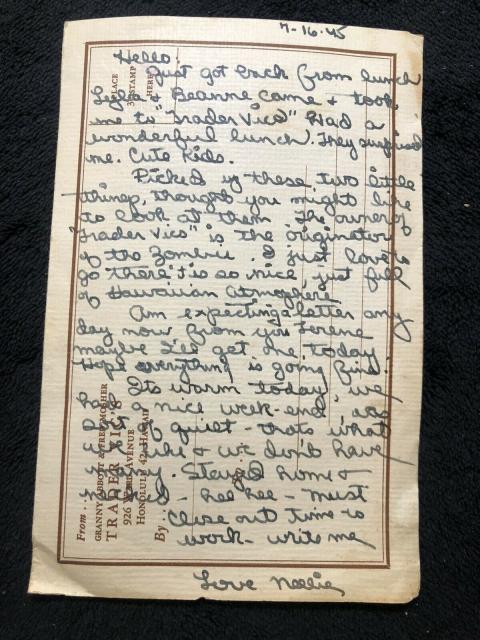 7-16-45
Hello
Just got back from lunch
& Jeanne came & took
me to "Trader Vics" Had a
wonderful lunch. They surprised
me. Cute Kids.
Picked up these two little
things, thought you might like
to look at them. The owner of
"Trader Vics" is the originator
of the Zombie. I just love to
go there it is so nice, just full
of Hawaiian Atmosphere
Am expecting a letter any
day now from you
maybe I'll get one today.
Hope everything is going fine.
Its warm today, we
had a nice week-end,
of quiet - thats what
like & we don't have
any. Stayed home &
hee hee - must
close out time to
work - write me
Love Nellie
PLACE
STAMP
HERE
From
GRANNY ABBOTT & FRED MOSHER
TRADER VIC'S
926 WARD AVENUE
HONOLULU 42, HAWAII
By